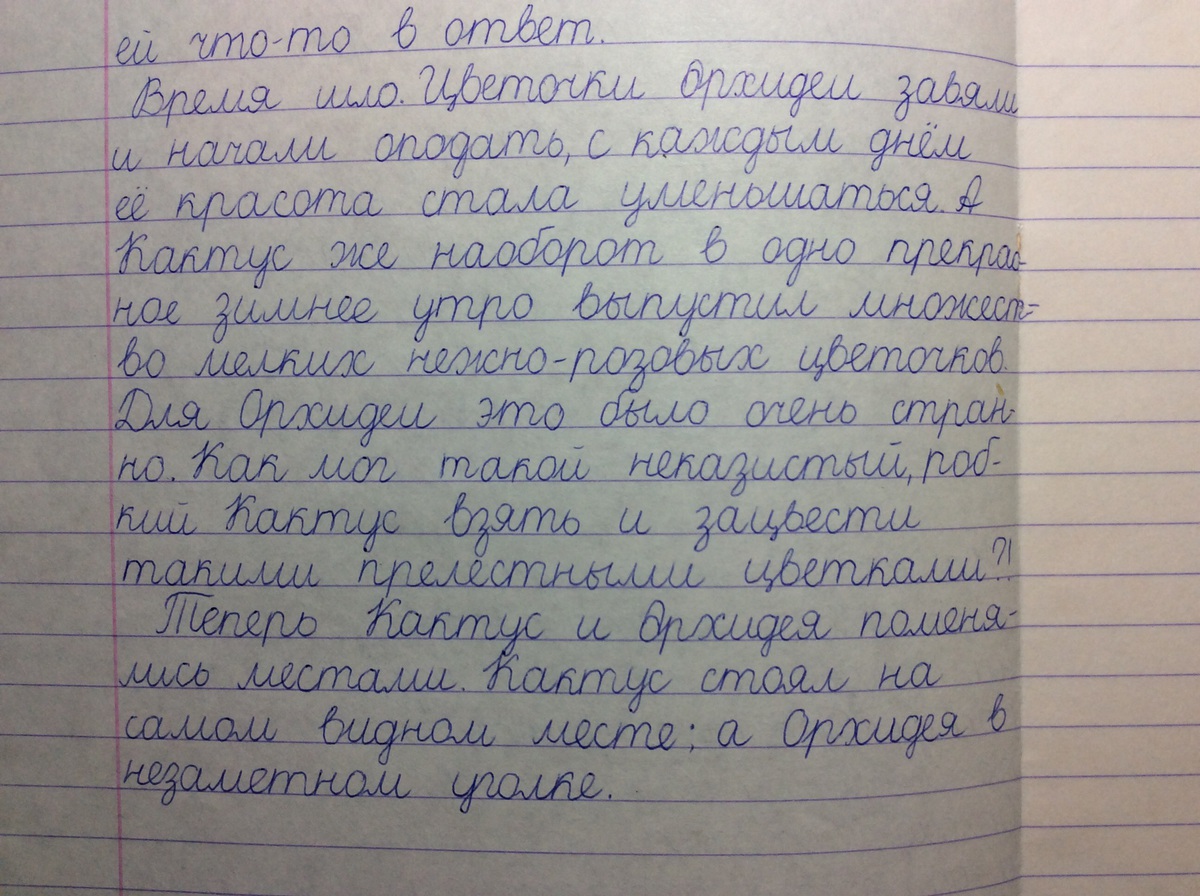 ей что-то в ответ.
Время шло. Цветочки Орхидеи завяли
и начали оподать, с каждым днём
её красота стала уменьшаться. А
Кактус же наоборот в одно прекрас-
ное зимнее утро выпустил множест-
во мелких нежно-розовых цветочков.
Для Орхидеи это было очень стран-
но. Как мог такой неказистый, роб-
кий Кактус взять и зацвести
такими прелестными цветками?!
Теперь Кактус и Орхидея поменя-
лись местами. Кактус стоял на
самом видном месте; а Орхидея в
незаметном уголке.